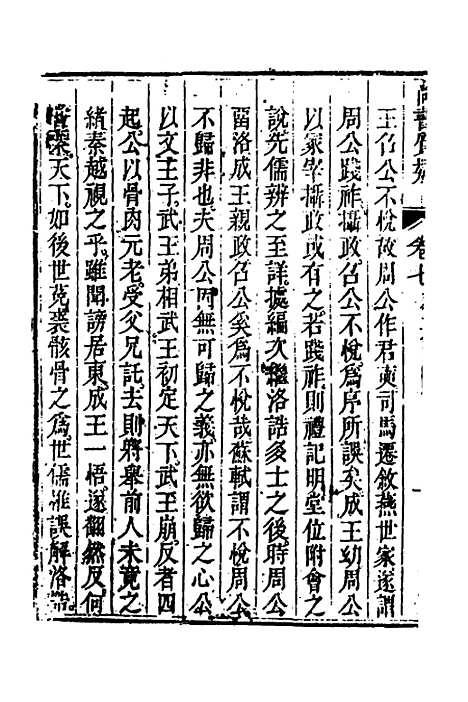 尚書 卷七
王召公不悅故周公作君奭司馬遷敘燕世家遂謂
周公踐祚攝政召公不悅爲序所誤矣成王幼周公
以冢宰攝政或有之若踐祚則禮記明堂位附會之
說先儒辨之至詳據編次繼洛誥多士之後時周公
留洛成王親政召公奚爲不悅哉蘇軾謂不悅周公
不歸非也夫周公固無可歸之義亦無欲歸之心公
以文王子武王弟相武王初定天下武王崩反者四
起公以骨肉元老受父兄託去則將舉前人未竟之
緒秦越視之乎雖聞謗居東成王一悟遂翻然反何
天下如後世菟裘骸骨之爲世儒誤解洛誥